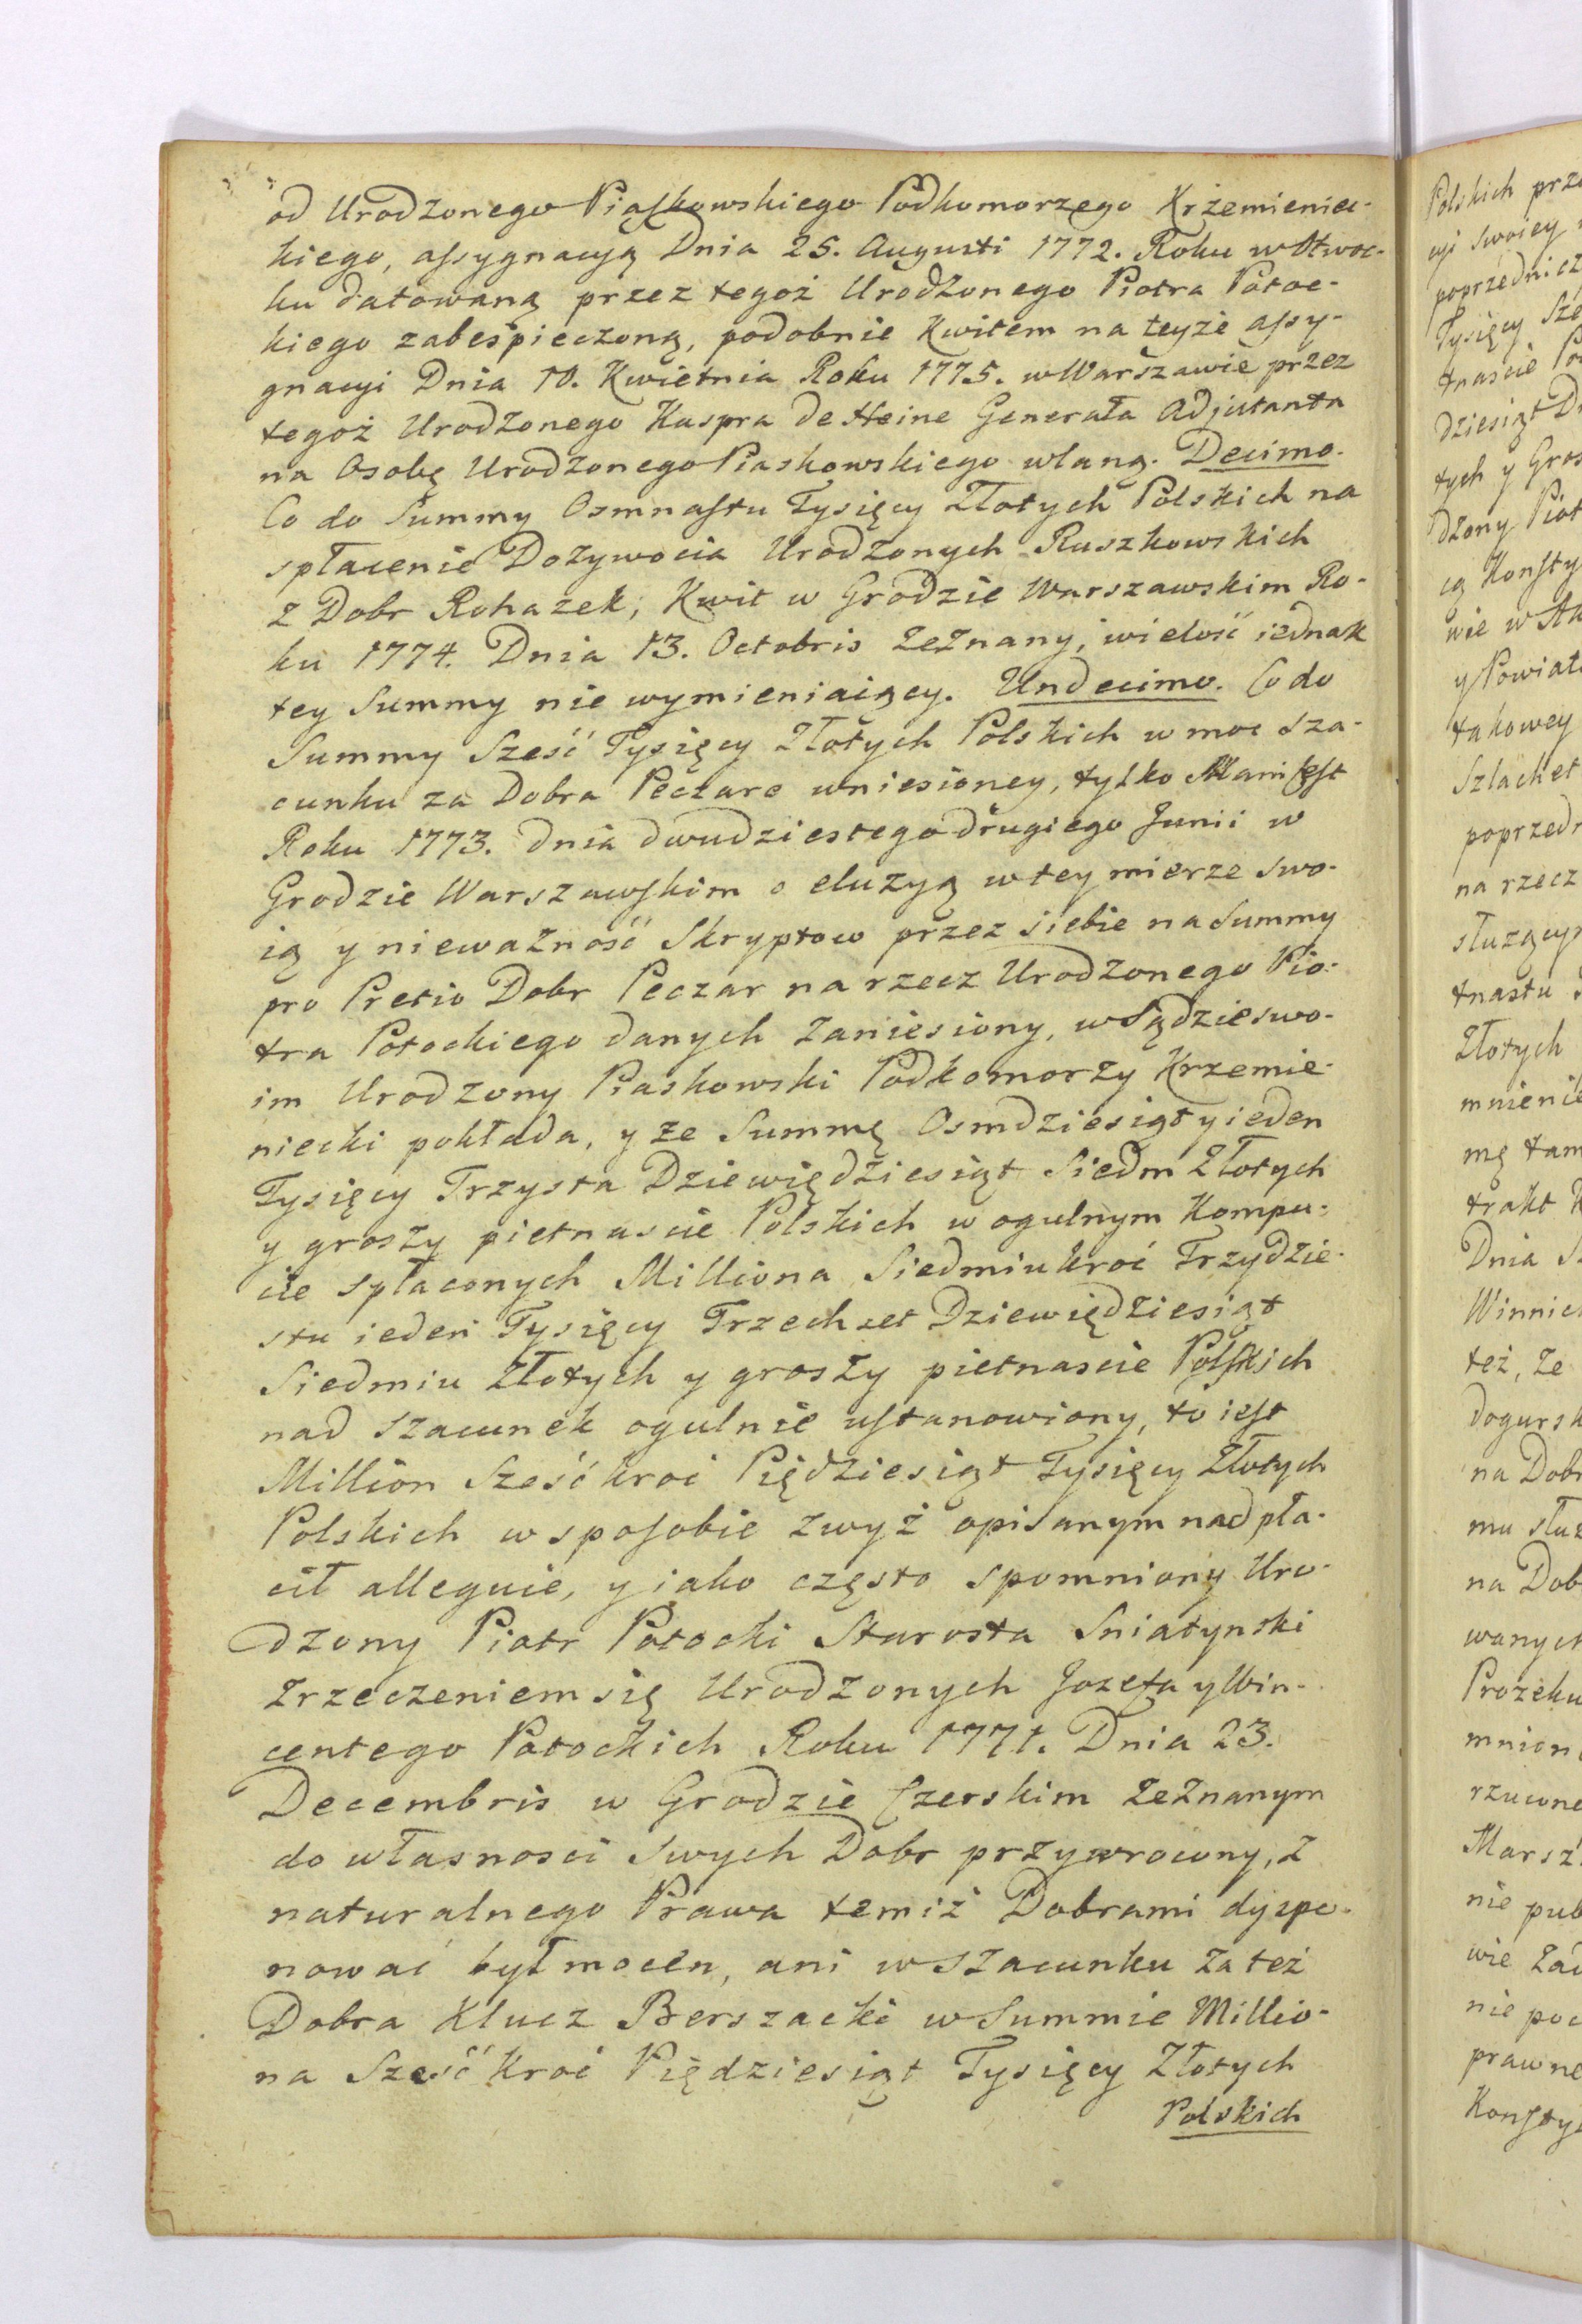 od Urodzonego Piaskowskiego Podkomorzego Krzemieniec-
kiego, assygnacyą Dnia 25. Augusti 1772. Roku w Otwoc-
ku datowaną przez tegoż Urodzonego Piotra Potoc-
kiego zabespieczoną, podobnie Kwitem na teyże assy-
gnacyi Dnia 10. Kwietnia Roku 1775. w Warszawie przez
tegoż Urodzonego Kaspra de Heine Generała Adjutanta
na Osobę Urodzonego Piaskowskiego wlaną. Decimo.
Co do Summy Osmnastu Tysięcy Złotych Polskich na
spłacenie Dożywocia Urodzonych Ruszkowskich
z Dobr Rohazek, Kwit w Grodzie Warszawskim Ro-
ku 1774. Dnia 13. Octobris zeznany, wielość iednak
tey Summy nie wymieniaiący. Undecimo. Co do
Summy Sześć Tysięcy Złotych Polskich w moc Sza-
cunku za Dobra Peczare wniesioney, tylko Manifest
Roku 1773. dnia dwudziestego drugiego Junii w
Grodzie Warszawskim o eluzyą w tey mierze swo-
ią y nieważność Skryptow przez siebie na Summy
pro Pretio Dobr Peczar na rzecz Urodzonego Pio-
tra Potockiego danych zaniesiony, w Sądzie swo-
im Urodzony Piaskowski Podkomorzy Krzemie-
niecki pokłada, y że Summę Osmdziesiąt y ieden
Tysięcy Trzysta Dziewiędziesiąt Siedm Złotych
y groszy pietnascie Polskich w ogulnym Kompu-
cie spłaconych Milliona Siedmiukroć Trzydzie-
stu ieden Tysięcy Trzechset Dziewiędziesiąt
Siedmiu Złotych y groszy pietnascie Polskich
nad szacunek ogulnie ustanowiony, to iest
Million Sześćkroć Piędziesiąt Tysięcy Złotych
Polskich w sposobie zwyż opisanym nadpła-
cił alleguie, y iako często spomniony Uro-
dzony Piotr Potocki Starosta Sniatynski
Zrzeczeniem się Urodzonych Jozefa y Win-
centego Potockich Roku 1771. Dnia 23.
Decembris w Grodzie Czerskim zeznanym
do własnosci swych Dobr przywrocony, z
naturalnego Prawa temiż Dobrami dyspo-
nować był mocen, ani w szacunku za też
Dobra Klucz Berszacki w Summie Millio-
na Sześćkroć Piędziesiąt Tysięcy Złotych
Polskich